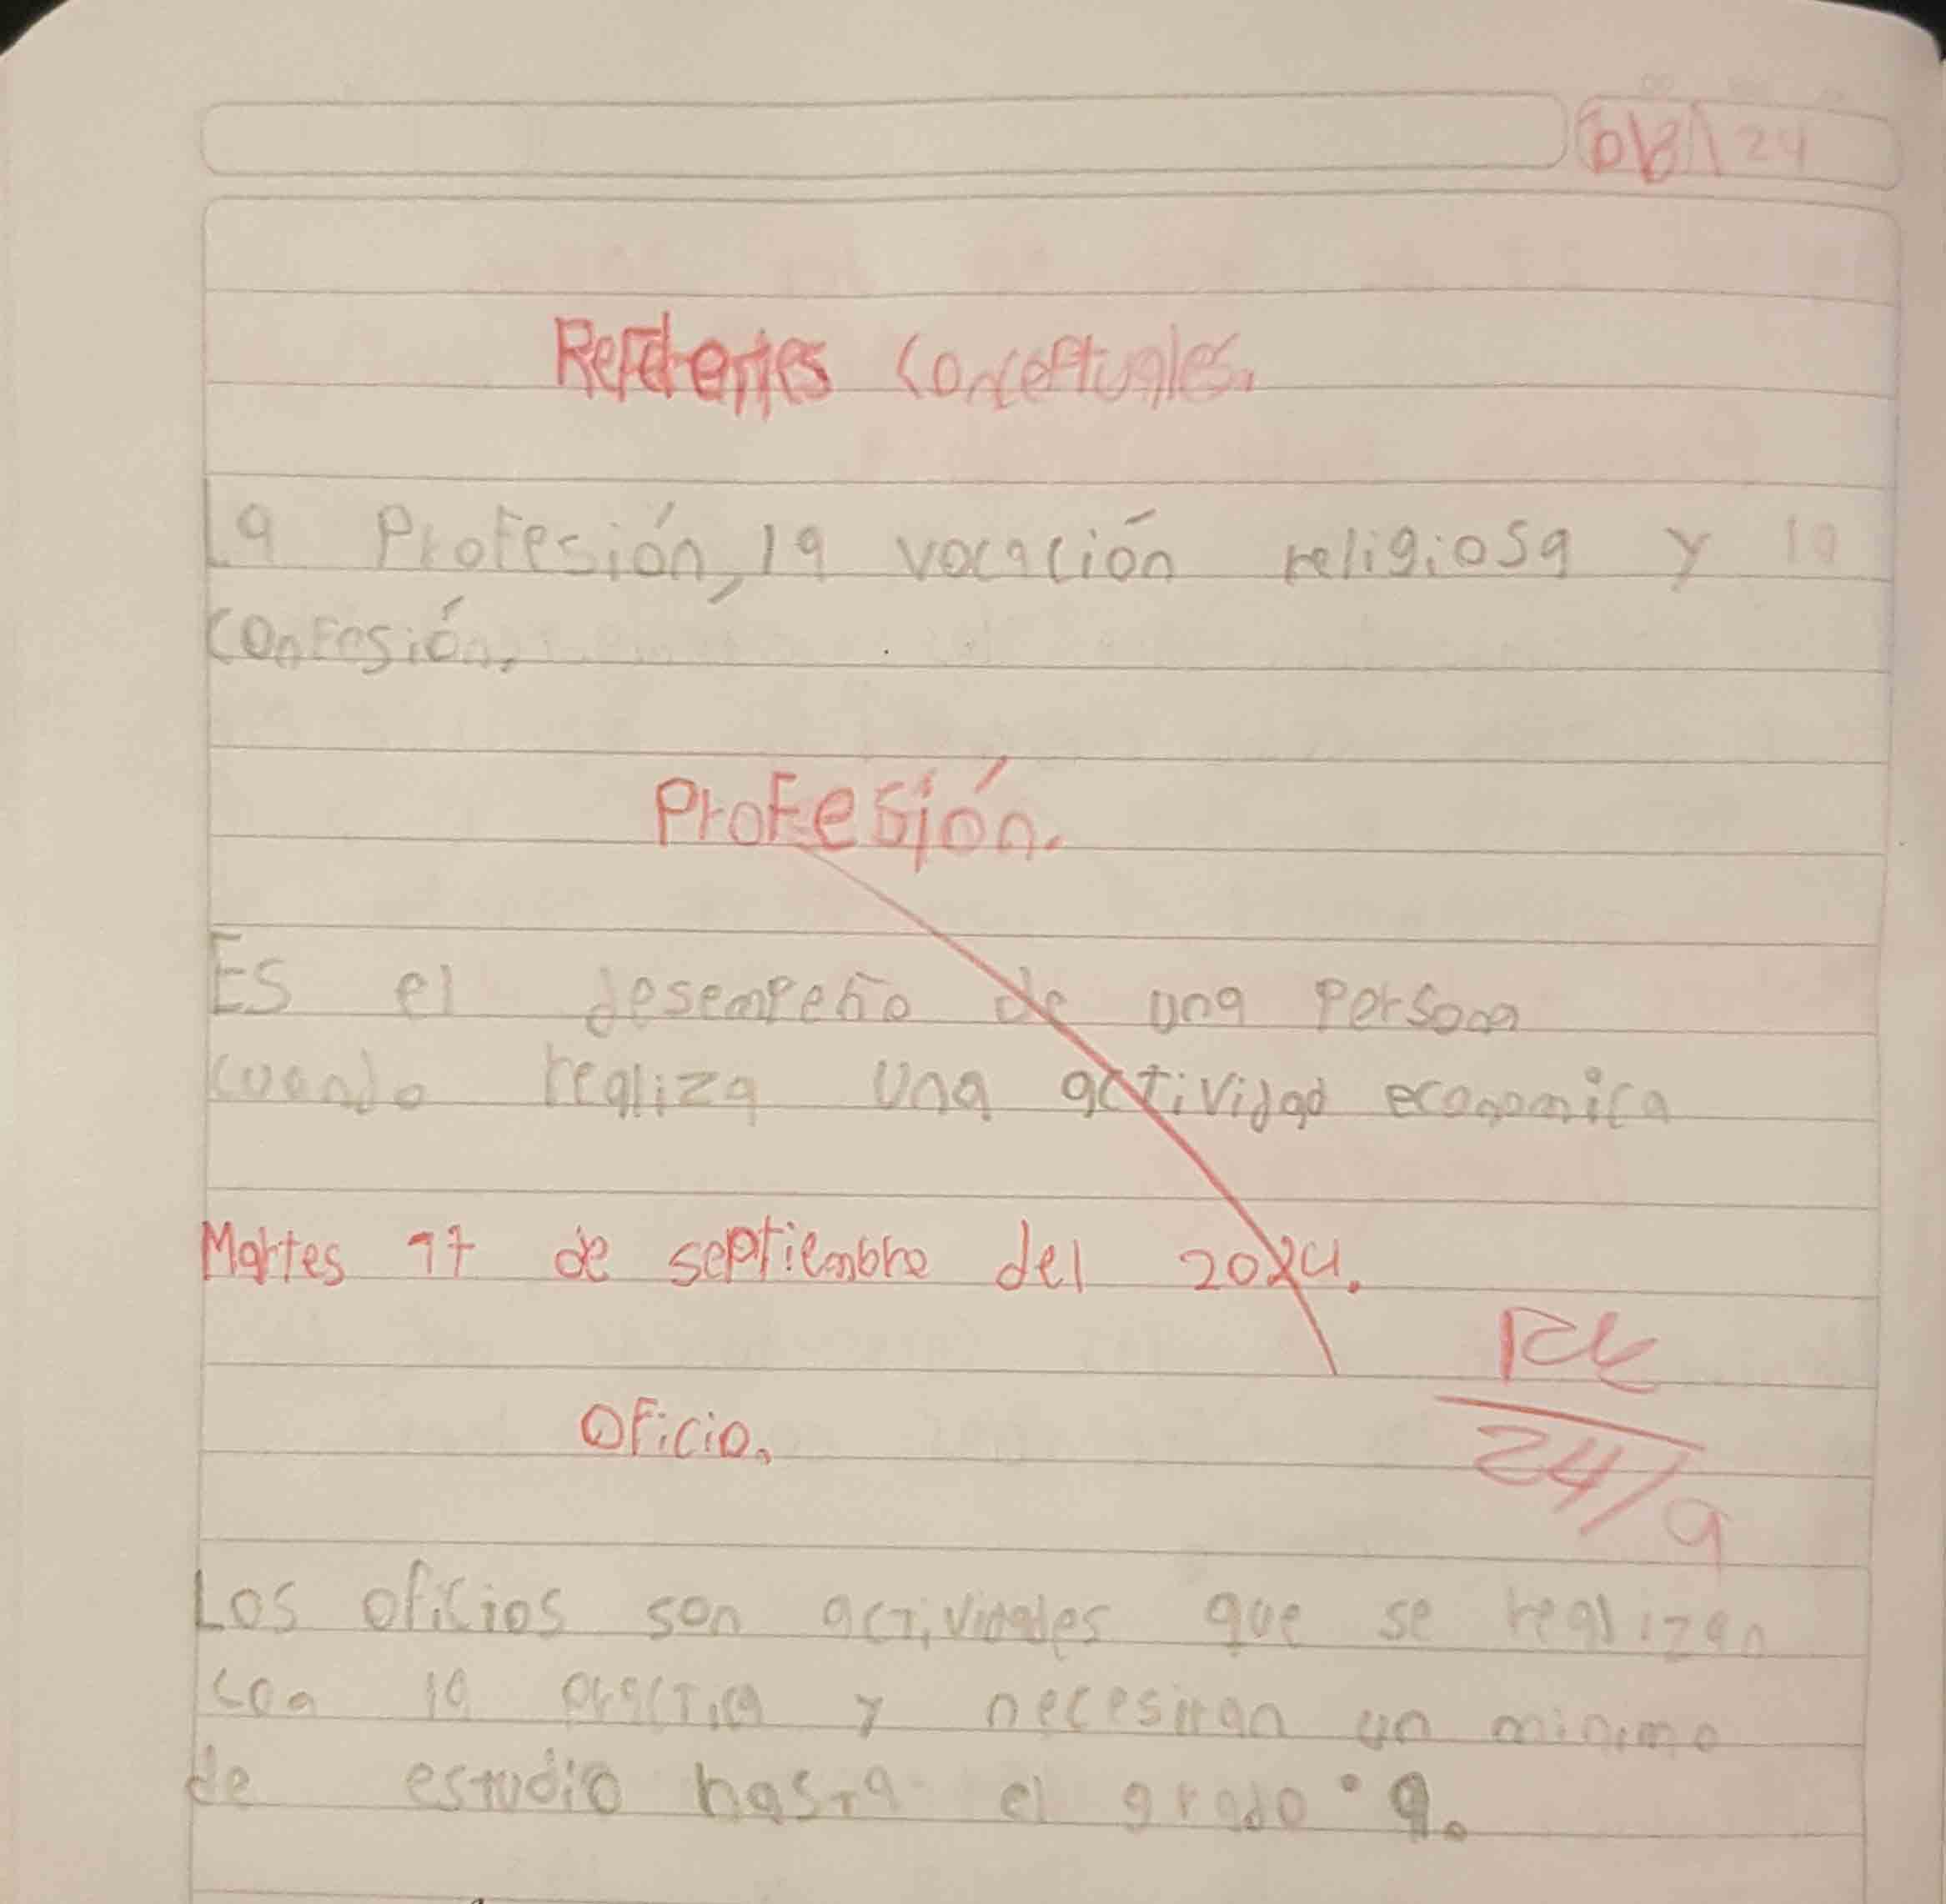 24
Referentes conceptuales.
La Profesión, la vocación religiosa y la
confesión.
Profesión.
Es el desempeño de una Persona
cuando realiza una actividad economica
Martes 17 de septiembre del 2024.
Oficio.
24/9
Los oficios son actividades que se realizan
con la practica y necesitan un minimo
de estudio hasta el grado 9.